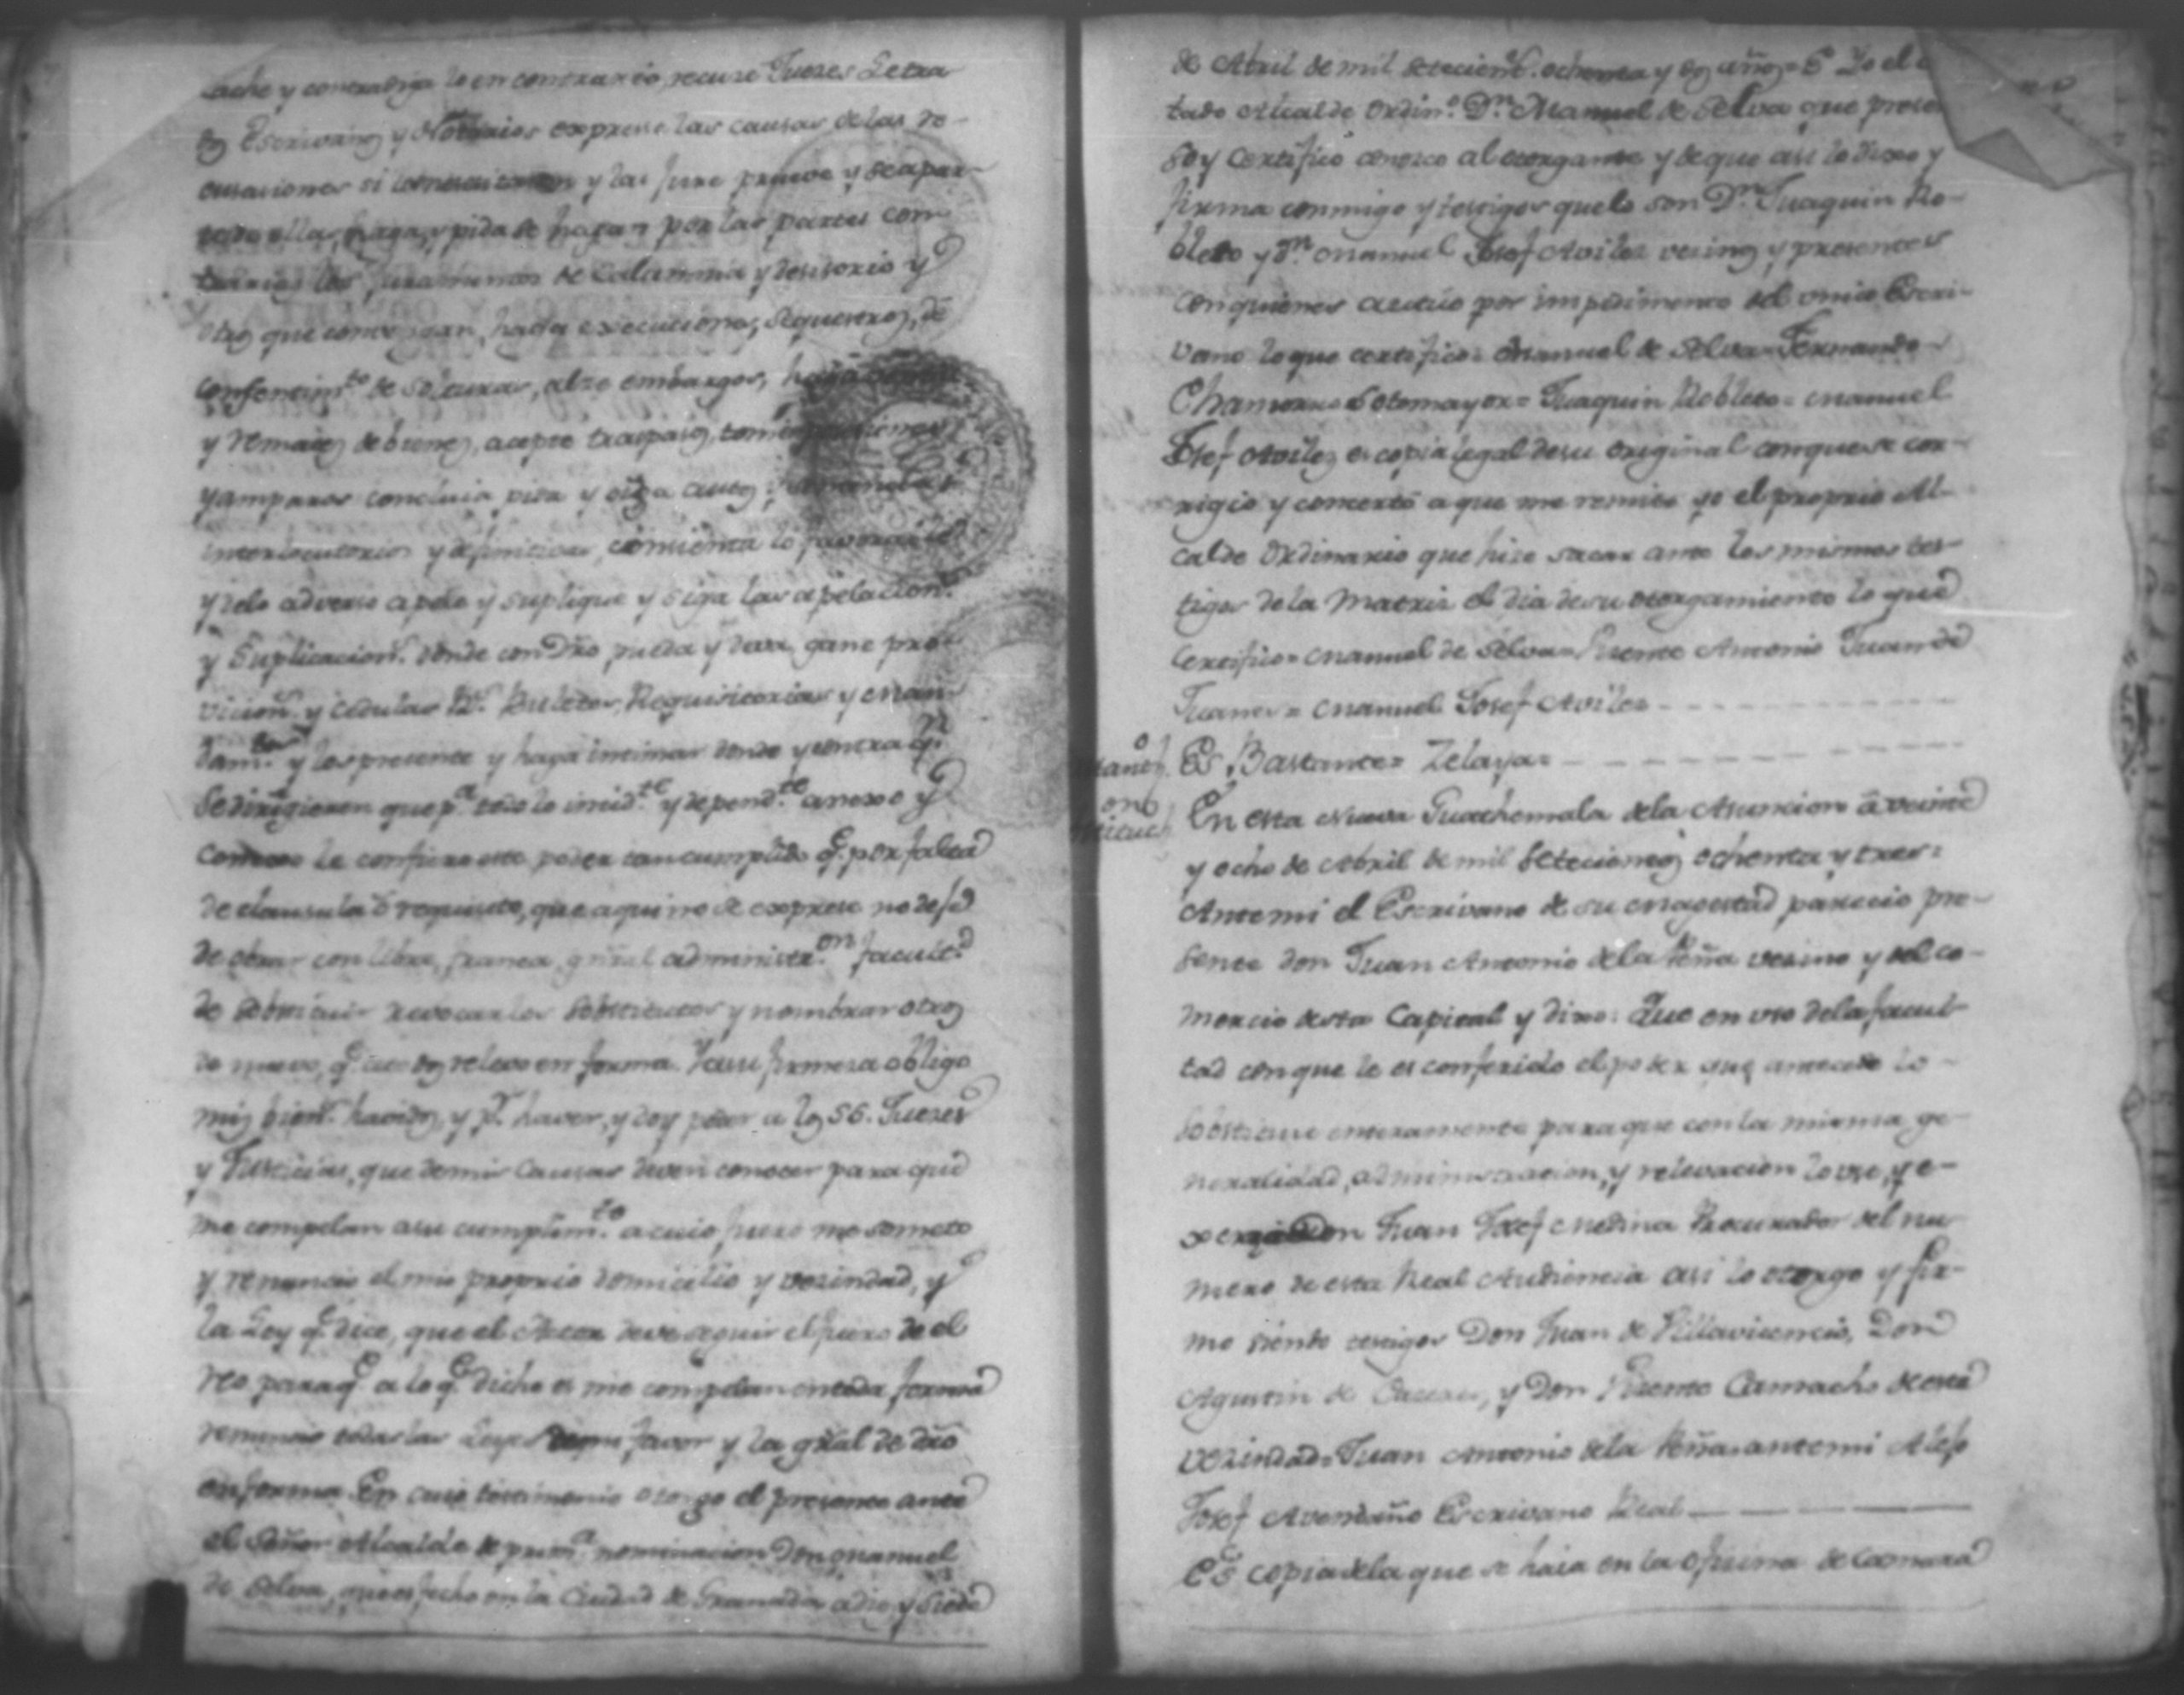 tache y contradiga lo en contrario, recuse Jueses Letra
dos Escrivanos y Notarios exprese las causas de las re-
cusaciones si lo necesitaren y las jure prueve y se apar-
te de ellas, haga, y pida se hagan por las partes con-
trarias los juramentos de Calumnia y desisorio y
otros que convengan, haga execuciones, sequestros, de
consentimto. de solturas, alze embargos, haga
y remates de bienes, acepte traspasos, tome posesiones
y amparos concluia pida y oiga autos y sentencias
interlocutorios y definitivas, consienta lo favorable
y delo adverso apele y suplique y siga las apelacions.
y Suplicacions. donde con dro pueda y deva, gane pro-
vicions. y cedulas Rs. Buletos, Requisitorias y man-
damtos. y los presente y haga intimar donde y contra qn.
se dirigieren que pa. todo lo incidte. y dependte. anexo y
conexo le confiero este poder tan cumplido q. por falta
de clausula ô requisito, que aqui no se exprese no deje
de obrar con libre, franca, gñral administron. facultd.
de sobstituir revocar los sobstitutos y nombrar otros
de nuevo, q. a todos relevo en forma. Y a su firmeza obligo
mis biens. havidos, y pr. haver, y doy poder a los SS. Jueses
y Justicias, que de mis Causas deven conocer para que
me compelan a su cumplimto. a cuio fuero me someto
y renuncio el mio proprio domicilio y vezindad, y
la Ley q. dice, que el Actor deve seguir el fuero de el
reo para q. a lo q. dicho es me compelan en toda forma
renuncio todas las Leyes de mi favor y la gñral de dro
en forma. En cuio testimonio otorgo el presente ante
el Señor Alcalde de prima. nominacion Don Manuel
de Selva, que es fecho en la Ciudad de Granada a dies y siete
de Abril de mil setecients. ochenta y dos años = E Yo el
tado Alcalde Ordino. Dn. Manuel de Selva que prese
soy Certifico conosco al otorgante y de que asi lo dixo y
firma conmigo y testigos que lo son Dn. Juaquin Ro-
bleto y Dn. Manuel Josef Aviles vesinos y presentes
con quienes actuo por impedimento del unico Escri-
vano lo que certifico = Manuel de Selva = Fernando
Chamorro Sotomayor = Juaquin Robleto = Manuel
Josef Aviles es copia legal de su original con que se cor-
rigio y concertó a que me remito yo el proprio Al-
calde Ordinario que hise sacar ante los mismos tes-
tigos de la Matriz el dia de su otorgamiento lo que
Certifico = Manuel de Selva = Vicente Antonio Juan de
= Manuel Josef Aviles
Es Bastante = Zelaya =
En esta Nueva Guathemala de la Asuncion â veinte
y ocho de Abril de mil setecientos ochenta y tres =
Ante mi el Escrivano de su Magestad parecio pre-
sente don Juan Antonio de la Peña vezino y del co-
mercio desta Capital y dixo: Que en uso de la facul-
tad con que le es conferido el poder que antecede lo
sobstituie enteramente para que con la misma ge-
neralidad, administracion, y relevacion lo use, y e-
xerza Don Juan Josef Medina Procurador del nu-
mero de esta Real Audiencia asi lo otorgo y fir-
mo siendo testigos Don Juan de Villavicencio, Don
Agustin de, y Don Vicente Camacho de esta
vezindad = Juan Antonio de la Peña = ante mi Alejo
Josef Avendaño Escrivano Real
Es copia de la que se haia en la oficina de Camara